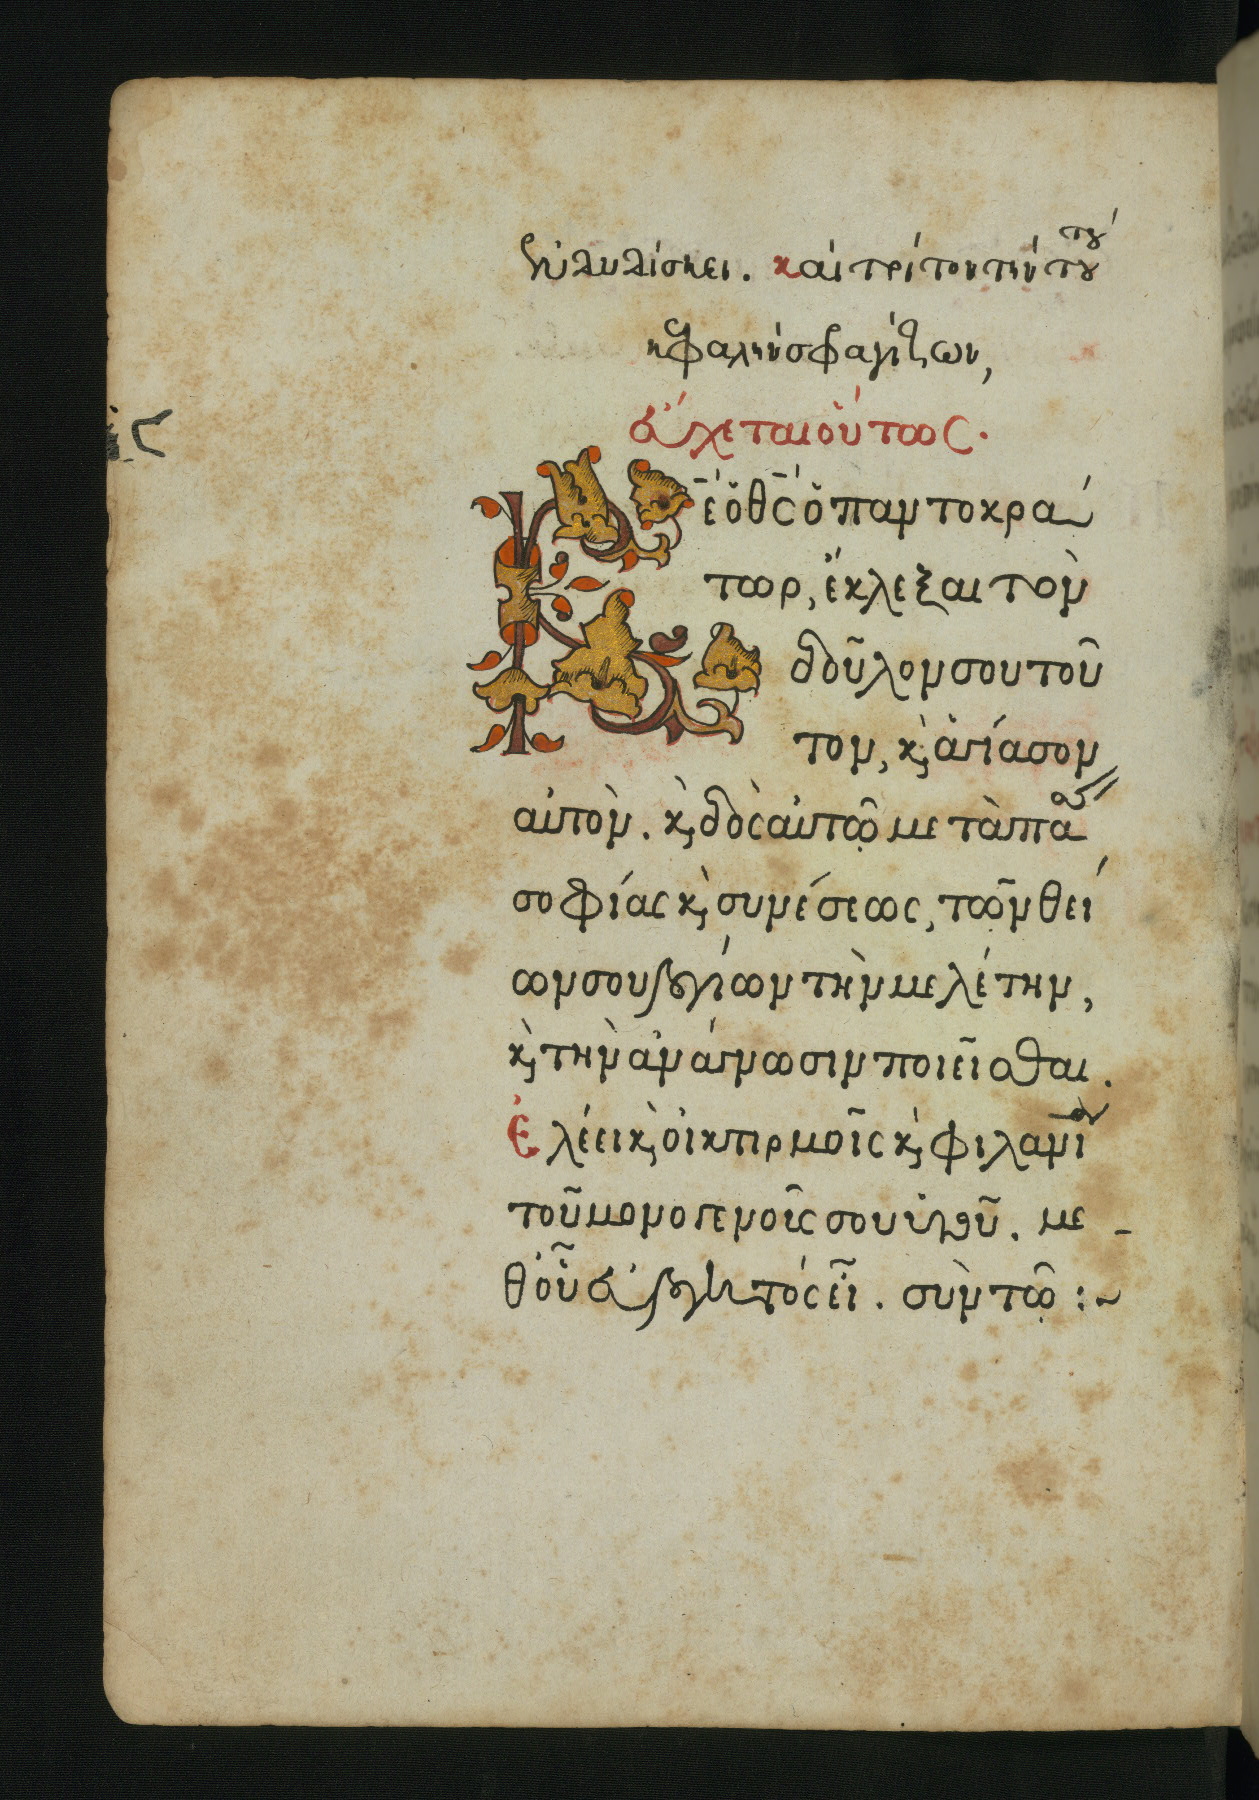 καὶ τρίτον τὴν τούτου
κεφαλὴν σφαγίζων,
εὔχεται οὕτως.
Κε ὁ θς ὁ παντοκρά
τωρ, ἔκλεξαι τὸν
δοῦλον σου τοῦ
τον, κ̀ ἁγίασον
αὐτὸν. κ̀ δὸς αὐτῷ μετὰ πάσης
σοφίας κ̀ συνέσεως, τῶν θεί
ων σου λογίων τὴν μελέτην,
κ̀ τὴν ἀνάγνωσιν ποιεῖσθαι.
Ἐλέει κ̀ οἰκτιρμοῖς κ̀ φιλανῖ
τοῦ μονογενοῦς σου υἱοῦ. με
θ' οὗ εὐλογητὸς εἶ. σὺν τῷ :~